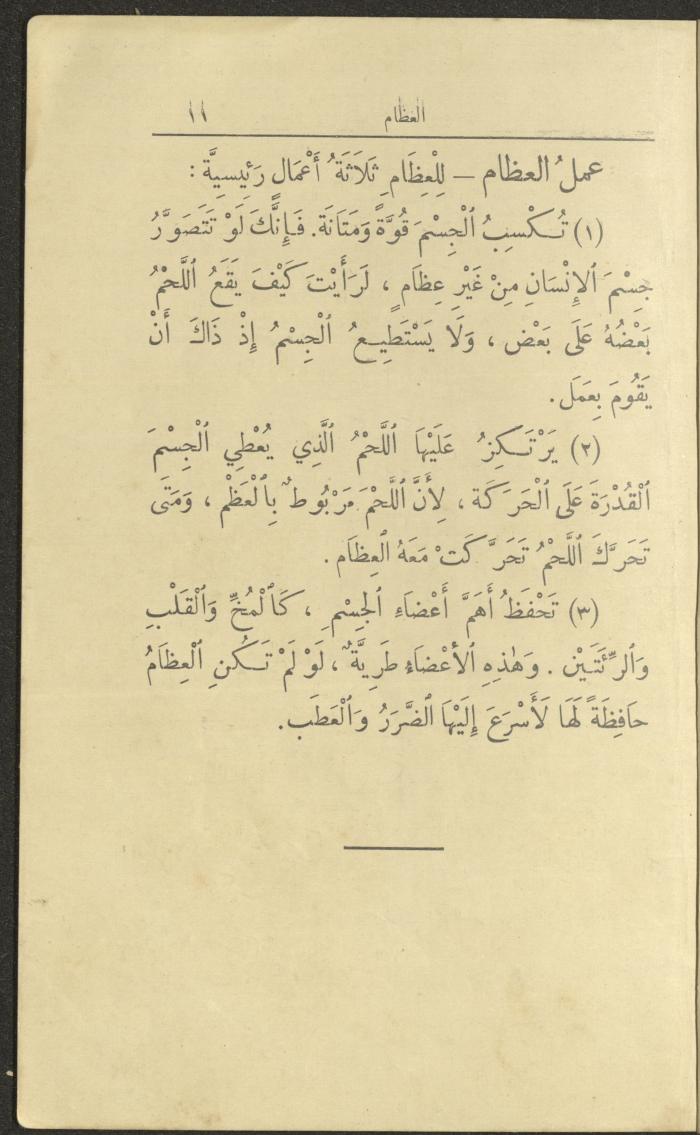 العظام ١١
عملُ العظام — لِلْعِظَامِ ثَلَاثَةُ أَعْمَالٍ رَئِيسِيَّة :
(١) تُكْسِبُ ٱلْجِسْمَ قُوَّةً وَمَتَانَة. فَإِنَّكَ لَوْ تَتَصَوَّرُ
جِسْمَ ٱلإِنْسَانِ مِنْ غَيْرِ عِظَامٍ ، لَرَأَيْتَ كَيْفَ يَقَعُ ٱللَّحْمُ
بَعْضُهُ عَلَى بَعْض ، وَلَا يَسْتَطِيعُ ٱلْجِسْمُ إِذْ ذَاكَ أَنْ
يَقُومَ بِعَمَل.
(٢) يَرْتَكِزُ عَلَيْهَا ٱللَّحْمُ ٱلَّذِي يُعْطِي ٱلْجِسْمَ
ٱلْقُدْرَةَ عَلَى ٱلْحَرَكَة ، لِأَنَّ ٱللَّحْمَ مَرْبُوطٌ بِٱلْعَظْم ، وَمَتَى
تَحَرَّكَ ٱللَّحْمُ تَحَرَّكَتْ مَعَهُ ٱلعِظَام .
(٣) تَحْفَظُ أَهَمَّ أَعْضَاءِ ٱلجِسْمِ ، كَٱلْمُخِّ وَٱلْقَلْبِ
وَٱلرِّئَتَيْن . وَهٰذِهِ ٱلأَعْضَاءُ طَرِيَّةٌ ، لَوْ لَمْ تَكُنِ ٱلْعِظَامُ
حَافِظَةً لَهَا لَأَسْرَعَ إِلَيْهَا ٱلضَّرَرُ وَٱلْعَطَب.